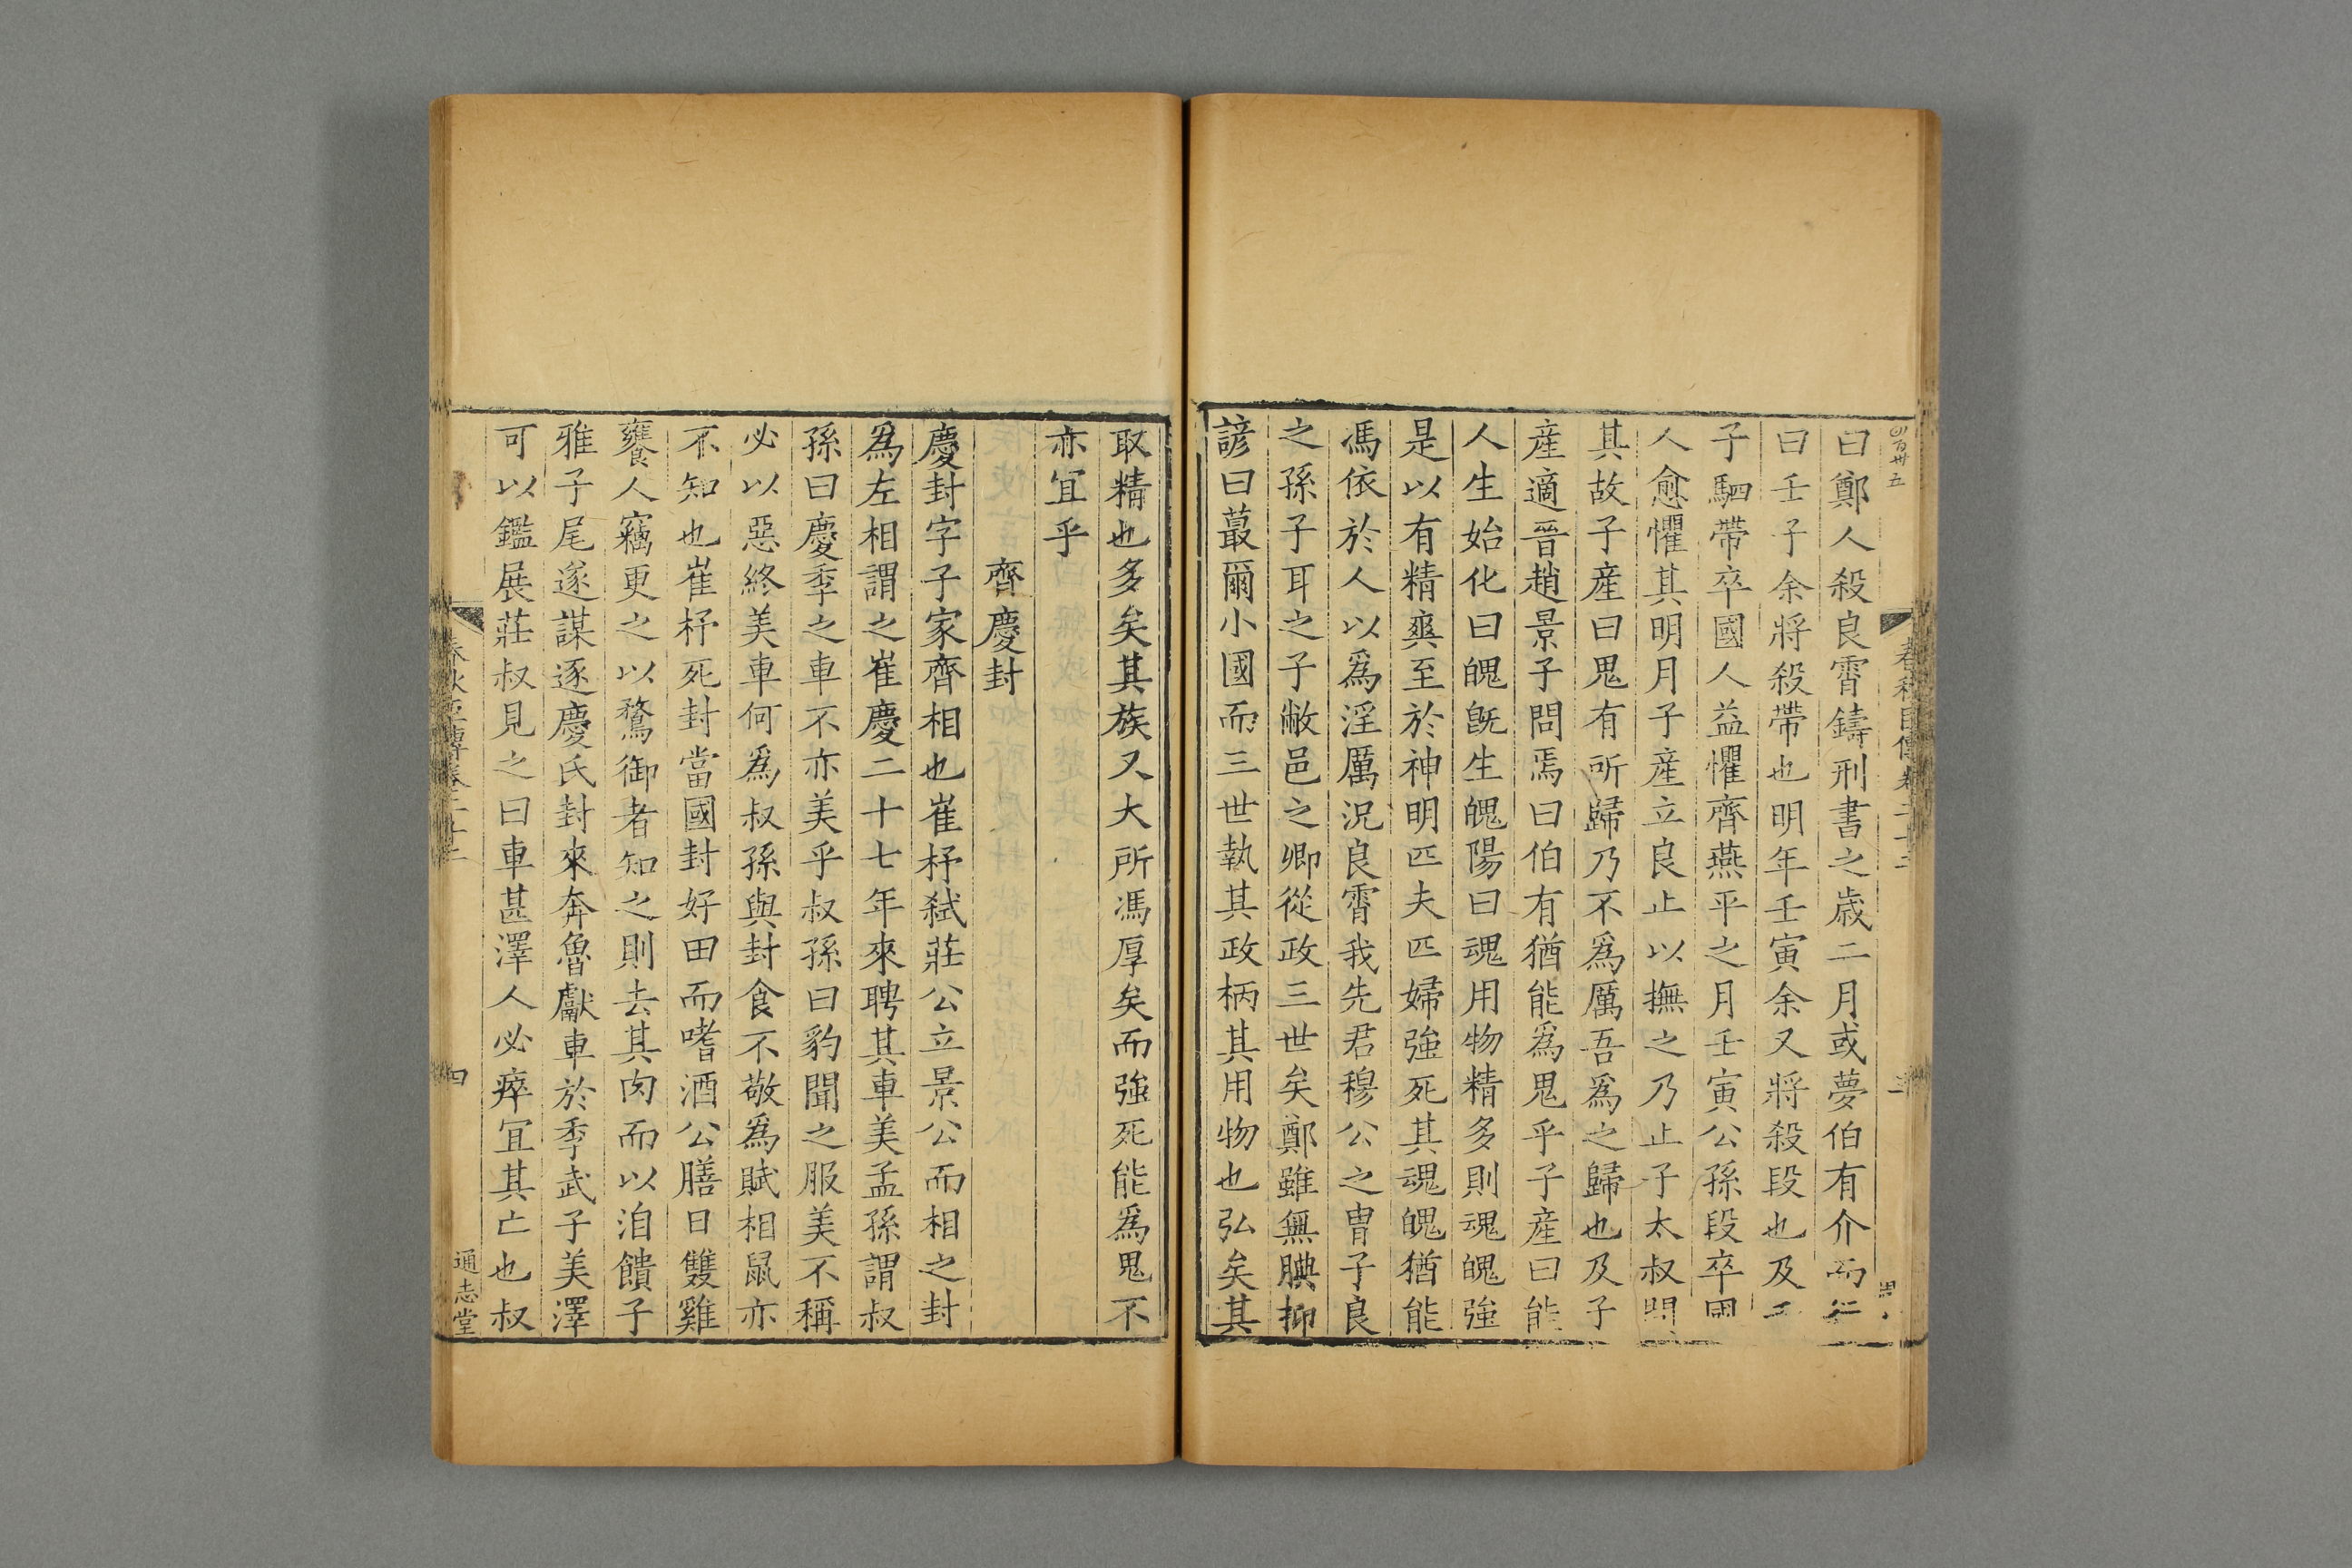 曰鄭人殺良霄鑄刑書之歲二月或夢伯有介而行
曰壬子余將殺帶也明年壬寅余又將殺段也及壬
子駟帶卒國人益懼齊燕平之月壬寅公孫段卒國
人愈懼其明月子産立良止以撫之乃止子太叔問
其故子産曰鬼有所歸乃不爲厲吾爲之歸也及子
産適晉趙景子問焉曰伯有猶能爲鬼乎子産曰能
人生始化曰魄旣生魄陽曰魂用物精多則魂魄強
是以有精爽至於神明匹夫匹婦強死其魂魄猶能
馮依於人以爲淫厲況良霄我先君穆公之胄子良
之孫子耳之子敝邑之卿從政三世矣鄭雖無腆抑
諺曰蕞爾小國而三世執其政柄其用物也弘矣其
取精也多矣其族又大所馮厚矣而強死能爲鬼不
亦宜乎
齊慶封
慶封字子家齊相也崔杼弑莊公立景公而相之封
爲左相謂之崔慶二十七年來聘其車美孟孫謂叔
孫曰慶季之車不亦美乎叔孫曰豹聞之服美不稱
必以惡終美車何爲叔孫與封食不敬爲賦相鼠亦
不知也崔杼死封當國封好田而嗜酒公膳日雙雞
饔人竊更之以鶩御者知之則去其肉而以洎饋子
雅子尾遂謀逐慶氏封來奔魯獻車於季武子美澤
可以鑑展莊叔見之曰車甚澤人必瘁宜其亡也叔
春秋臣傳卷二十二
四
通志堂